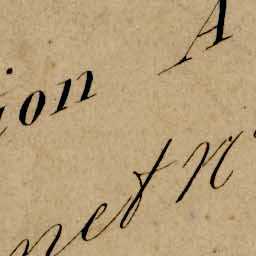 ion A
net N